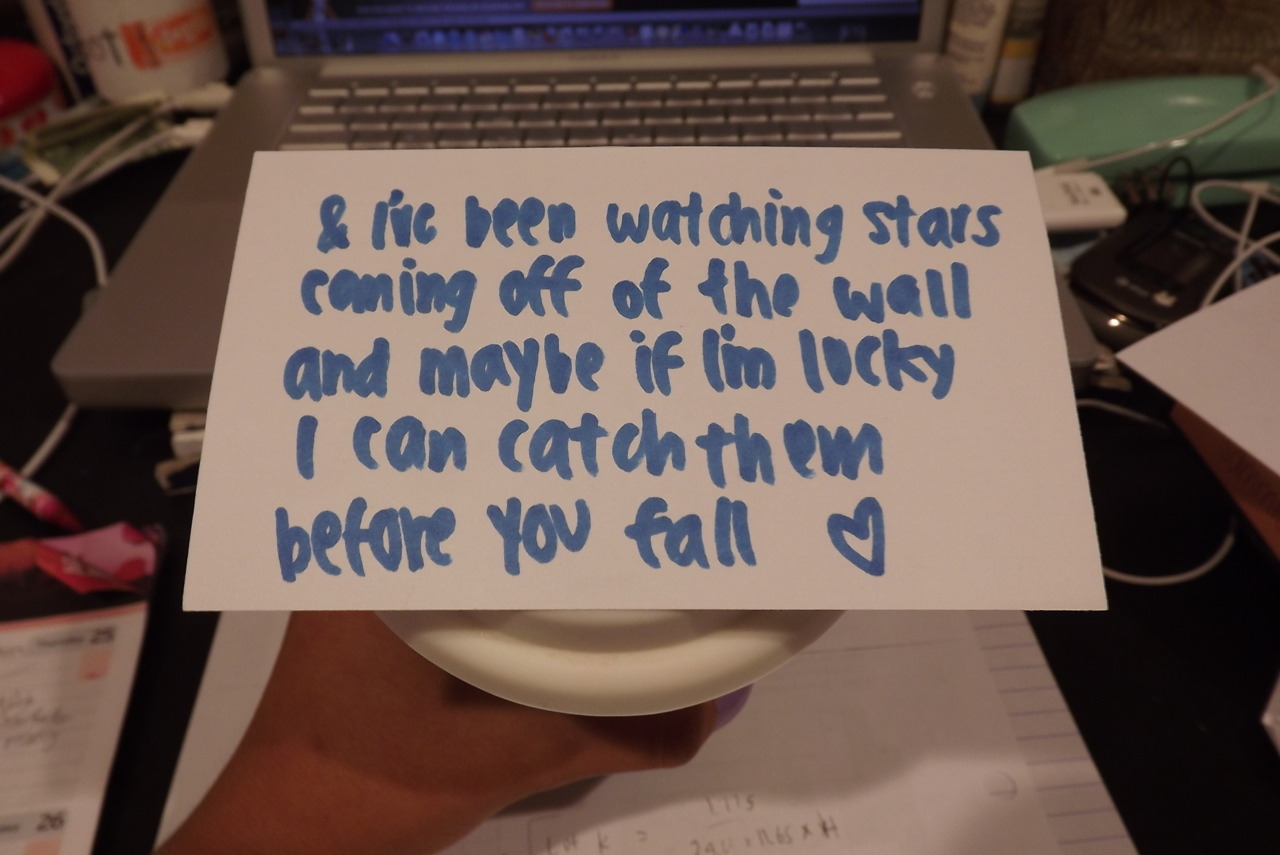 & I've been watching stars
coming off of the wall
and maybe if I'm lucky
I can catch them
before you fall ♡
25
26